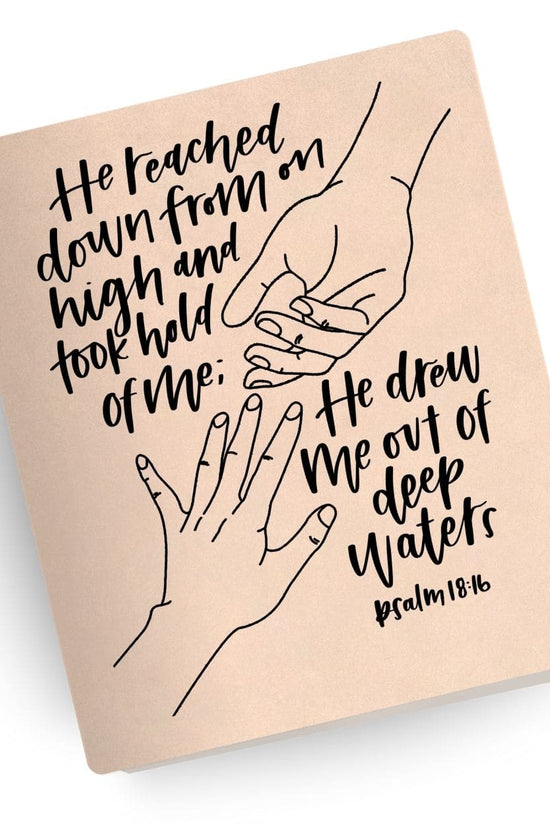 He reached
down from on
high and
took hold
of me;
He drew
me out of
deep
waters
psalm 18:16